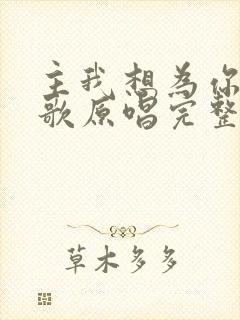 主我想为你
歌原唱完整
草木多多